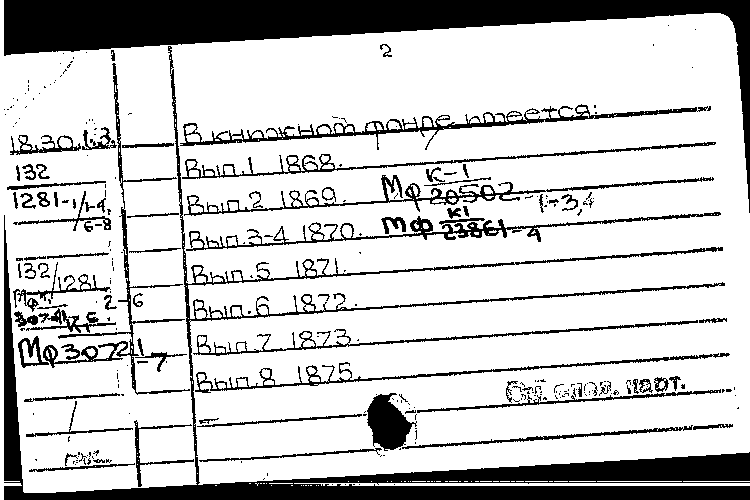 2
18.30.1.3.
В книжном фонде имеется:
132
Вып.1 1868.
1281-1/1-4,
6-8
Вып.2 1869. Мф К-1
20502-1-3,4
Вып.3-4 1870. Мф К1
23861-4
132/1281
Вып.5 1871.
2-6
Вып.6 1872.
Мф 30721
-7
Вып.7 1873.
Вып.8 1875.
См. след. карт.